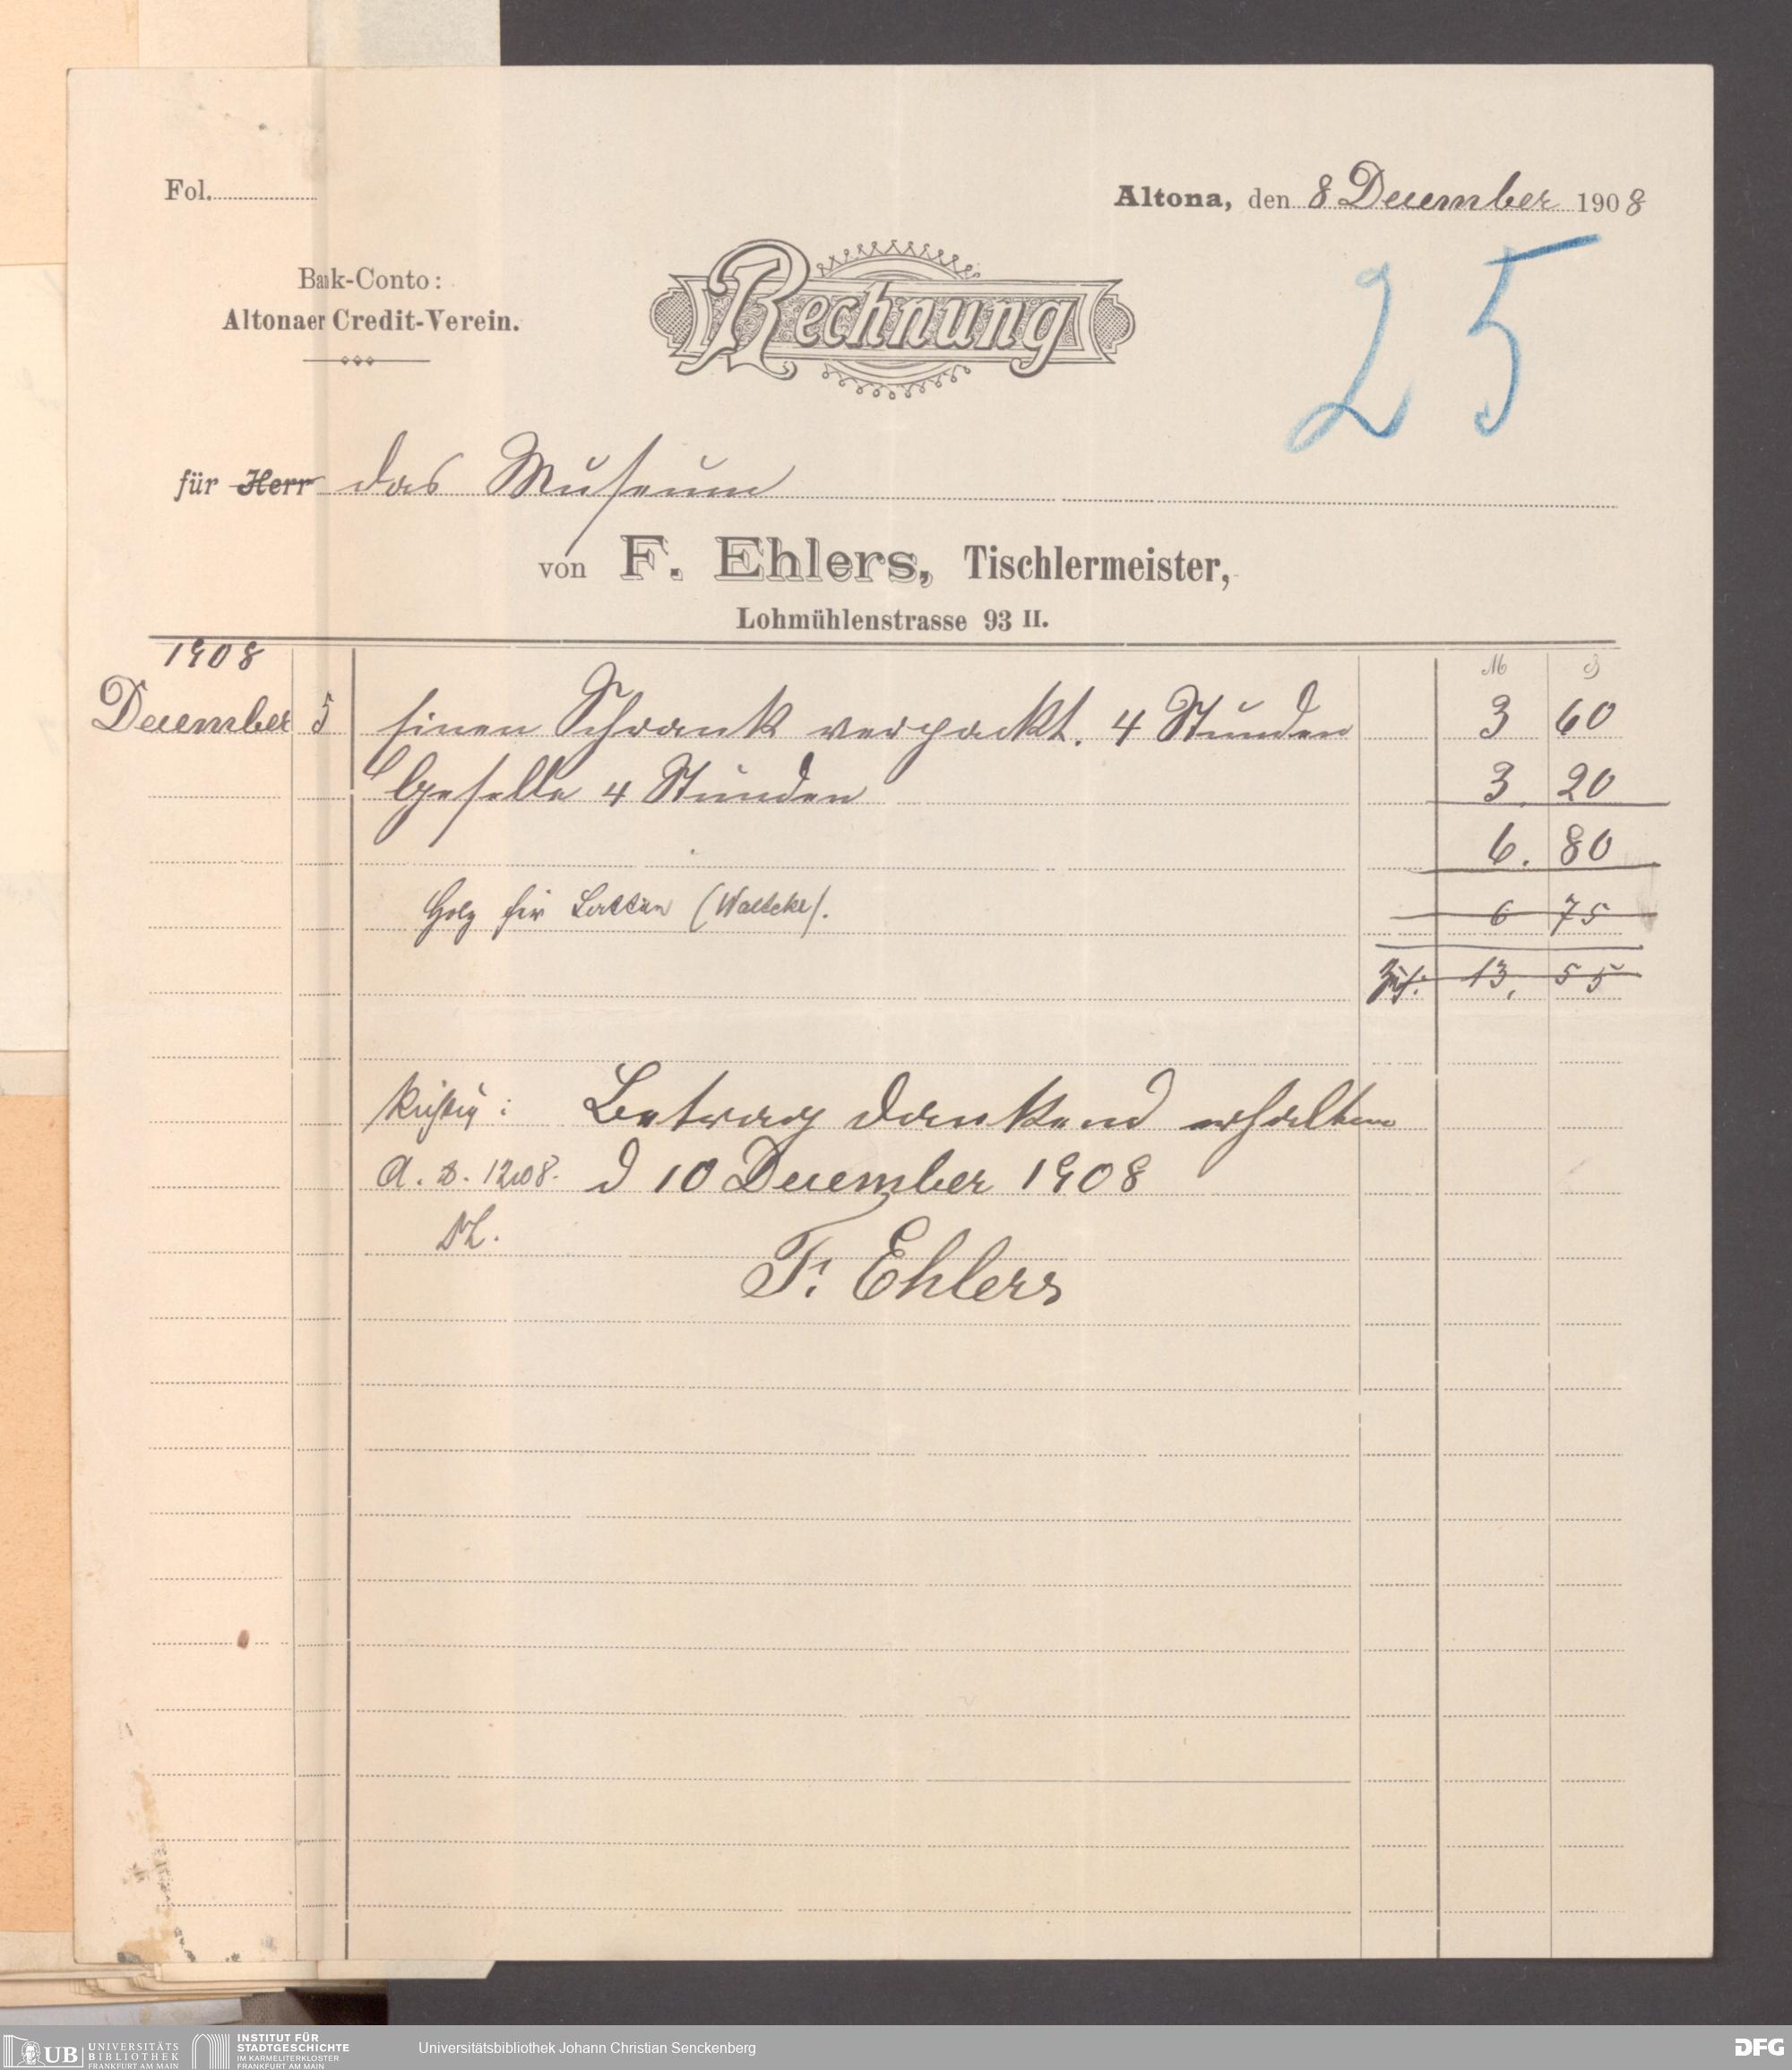 Fol.
Altona, den 8 December 1908
Bank-Conto:
Altonaer Credit-Verein.
Rechnung
25
für Herr das Museum
von F. Ehlers, Tischlermeister,
Lohmühlenstrasse 93 II.
1908
M ₰
December 5 Einen Schrank verpackt. 4 Stunden 3 60
Geselle 4 Stunden 3. 20
6. 80
Holz für Latten 6 75
Zus: 13, 55
Richtig: Betrag dankend erhalten
d 10 December 1908
F. Ehlers
UB UNIVERSITÄTS BIBLIOTHEK FRANKFURT AM MAIN
INSTITUT FÜR STADTGESCHICHTE IM KARMELITERKLOSTER FRANKFURT AM MAIN
Universitätsbibliothek Johann Christian Senckenberg
DFG